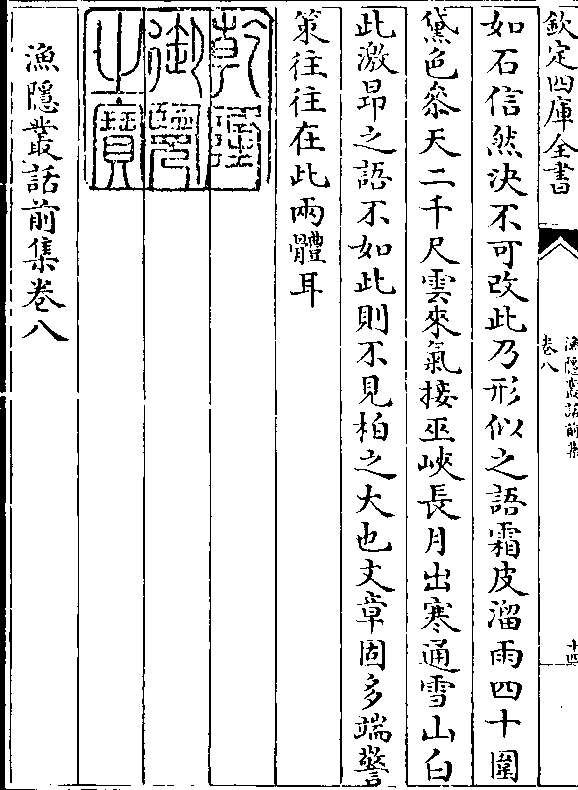 欽定四庫全書
漁隱叢話前集
卷八
十四
如石信然決不可改此乃形似之語霜皮溜雨四十圍
黛色叅天二千尺雲來氣接巫峽長月出寒通雪山白
此激昂之語不如此則不見柏之大也文章固多端警
策往往在此兩體耳
乾隆御覽之寶
漁隱叢話前集卷八